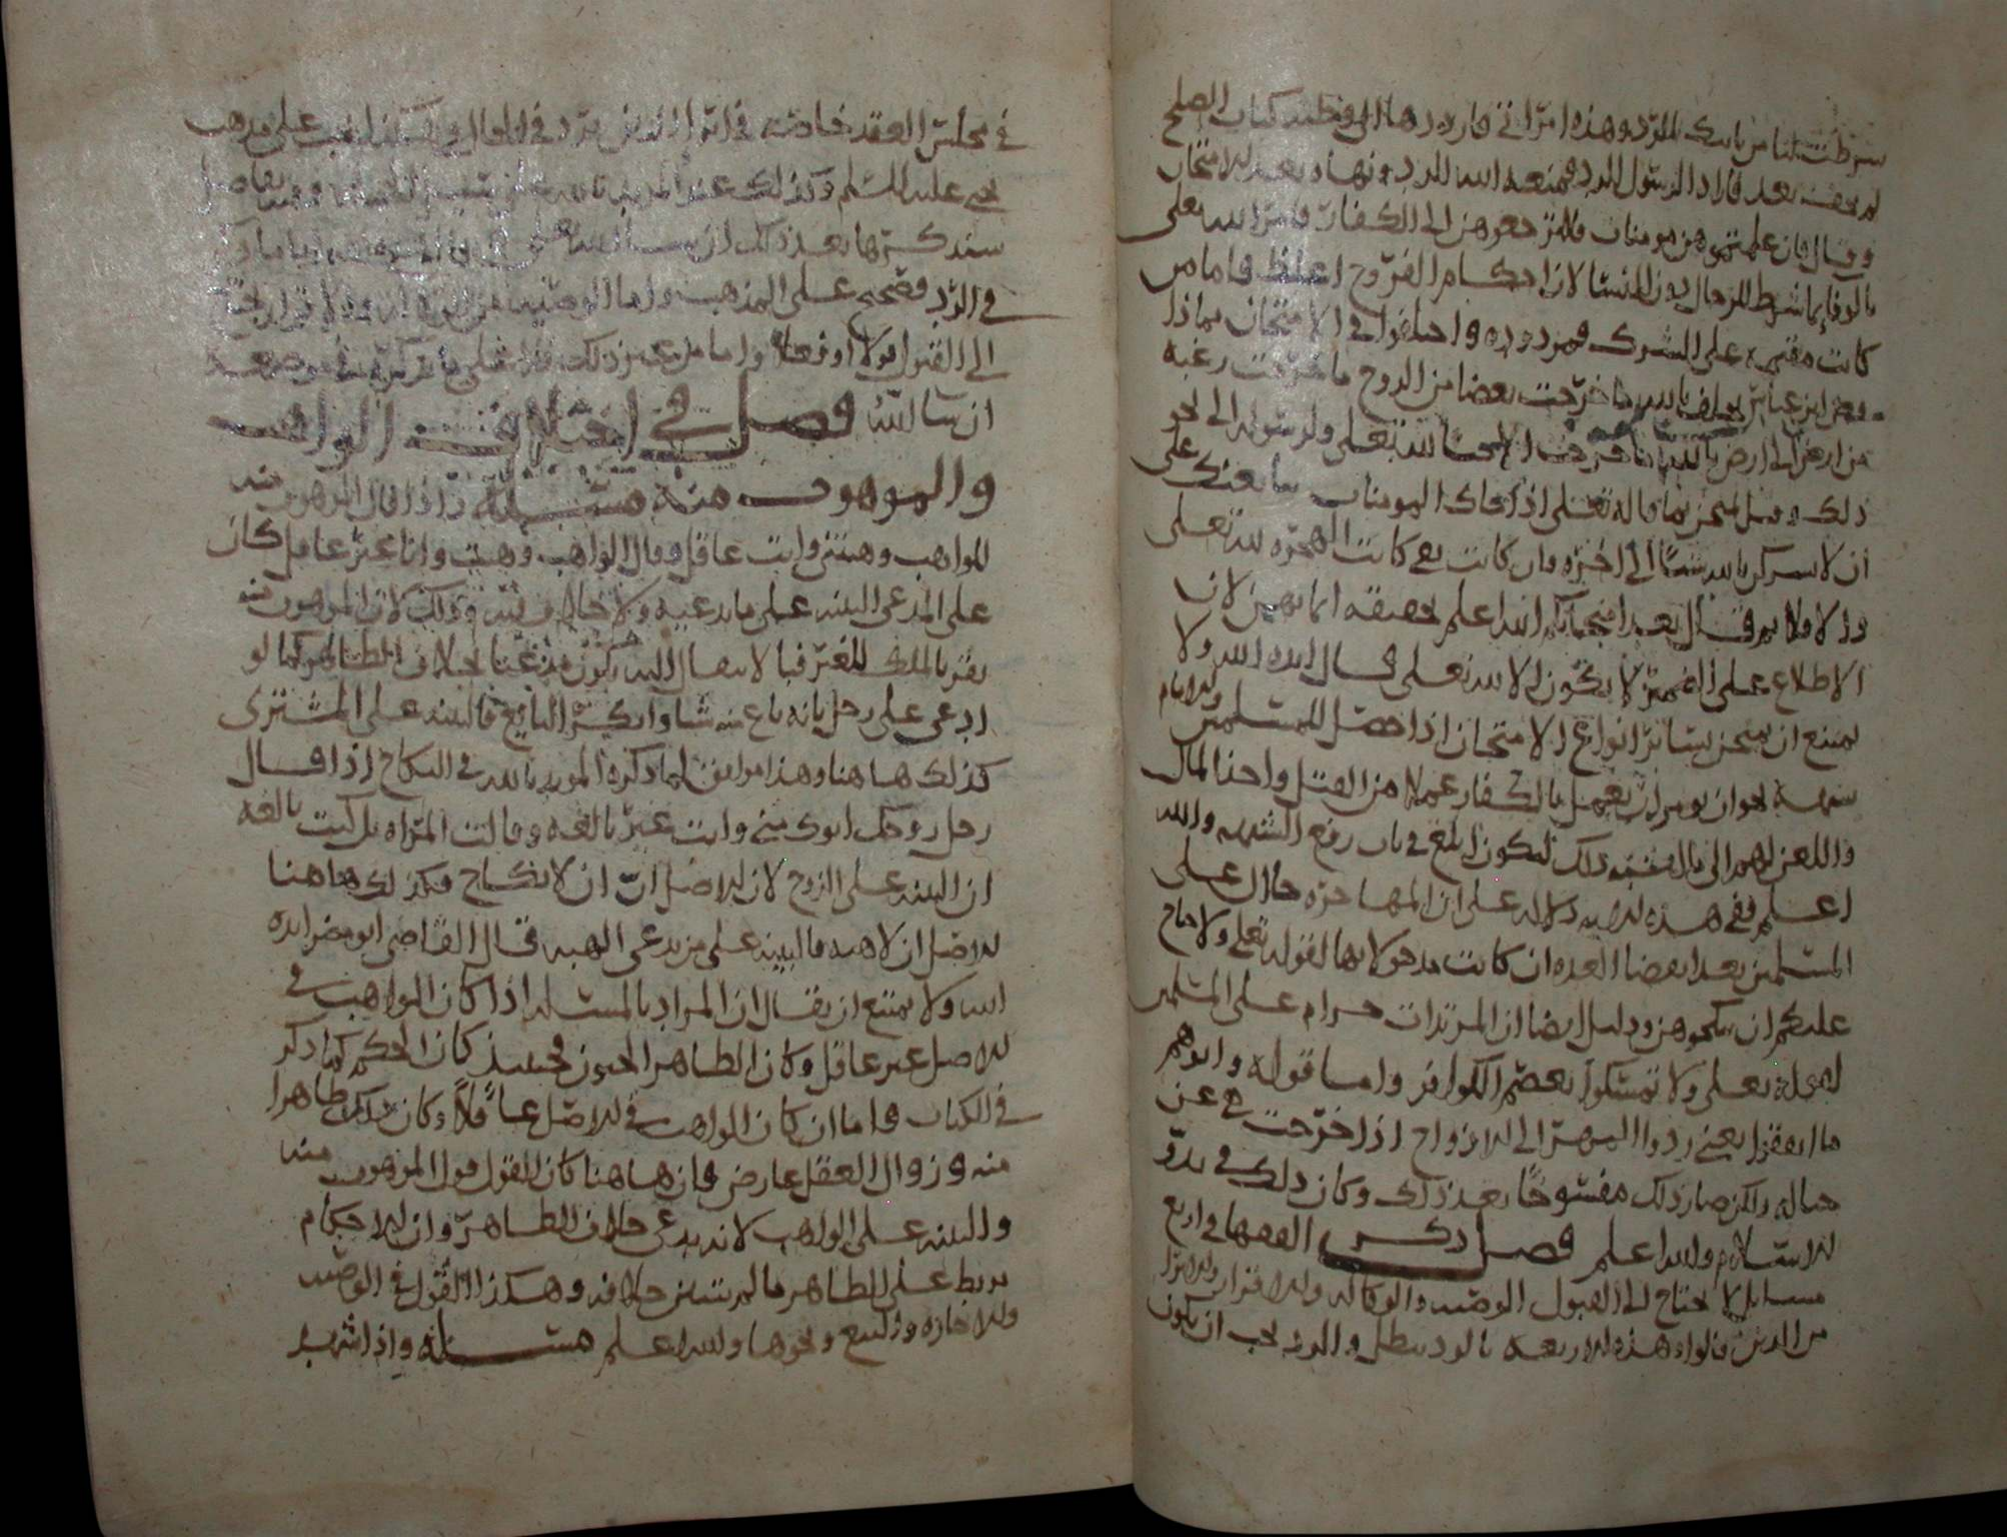 شرطت لنا من ياتك للرد وهذه امراتي فارددها الي وطينه كتاب الصلح
لم تجف بعد فاراد الرسول الرد فمنعه الله الرد ونهاه بعد الامتحان
وقال فان علمتموهن مومنات فلا ترجعوهن الى الكفار فامر الله تعلى
بالوفا بما شرط للرجال دون النسا لان احكام الفروج اغلظ فاما من
كانت مقيمة على الشرك فمردودة واختلفوا في الامتحان بماذا
فعن ابن عباس يحلف بالله ما خرجت بغضا من الزوج ما خرجت رغبة
عن ارض الى ارض بالله ما خرجت الا حبا لله تعلى ولرسوله الى نحو
ذلك وقيل تمتحن بما قاله تعلى اذا جاك المومنات يبايعنك على
ان لا يشركن بالله شيئا الى اخره فان كانت هي كانت الهجرة لله تعلى
والا فلا ثم قال بعد امتحانكم الله اعلم بحقيقة ايمانهن لان
الاطلاع على الضمير لا يكون الا لله تعلى قال ايده الله ولا
يمتنع ان يمتحن بسائر انواع الامتحان اذا حصل للمسلمين والامام
شبهة نحو ان يومر ان يعمل بالكفار عملا من القتل واخذ المال
واللعن لهم الى بالغ ذلك ليكون ابلغ في باب رفع الشبهه والله
اعلم ففي هذه الايه دلاله على ان المهاجره حلال على
المسلمين بعد انقضا العده ان كانت مدخولا بها لقوله تعلى ولا جناح
عليكم ان تنكحوهن ودليل ايضا ان المرتدات حرام على المسلمين
لقوله تعلى ولا تمسكوا بعصم الكوافر واما قوله واتوهم
ما انفقوا يعني ردوا المهر الى الازواج اذا خرجت هي عن
حباله ولكن صار ذلك مفسوخا بعد ذلك وكان ذلك في بدو
الاسلام والله اعلم فصل ذكر الفقها في اربع
مسائل لا تحتاج الى القبول الوصيه والوكاله والاقرار والابرا
من الدين قالوا وهذه الاربعه بالرد تبطل والرد يجب ان يكون
في مجلس العقد خاصة في ابرا الدين يرد في الحال على مذهب
يحيى عليه السلم وكذلك عند المويد بالله
سنذكرها بعد ذلك ان شا الله
في الرد فصحيح على المذهب واما الوصيه
الى القبول قولا او فعلا واما من غير ذلك فعلى ما نذكره في موضعه
ان شا الله فصل في اختلاف الواهب
والموهوب منه مسئلة واذا قال الموهوب منه
للواهب وهبتني وانت عاقل وقال الواهب وهبت وانا غير عاقل كان
على المدعي البينه على ما يدعيه ولا خلاف فيه وذلك لان الموهوب منه
يقر بالملك للغير فبالانتقال اليه يكون مدعيا بخلاف الظاهر كما لو
ادعى على رجل بانه باع منه شيا وانكر البايع فالبينه على المشتري
كذلك هاهنا وهذا موافق لما ذكره المويد بالله في النكاح اذا قال
رجل زوجك ابوك مني وانت غير بالغه وقالت المراه بل كنت بالغه
ان البينه على الزوج لان الاصل ان لا نكاح فكذلك هاهنا
الاصل ان لا هبه فالبينه على من يدعي الهبه قال القاضي ابو مضر ايده
الله ولا يمتنع ان يقال ان المراد بالمسئله اذا كان الواهب في
الاصل غير عاقل وكان الظاهر الجنون فحينئذ كان الحكم كما ذكر
في الكتاب فاما ان كان الواهب في الاصل عاقلا وكان ذلك ظاهرا
منه وزوال العقل عارض فان هاهنا كان القول قول الموهوب منه
والبينه على الواهب لانه يدعي خلاف الظاهر وان الاحكام
تربط على الظاهر ما لم يتبين خلافه وهكذا القول في الوصيه
والاجاره والبيع ونحوها والله اعلم مسئلة واذا شهد